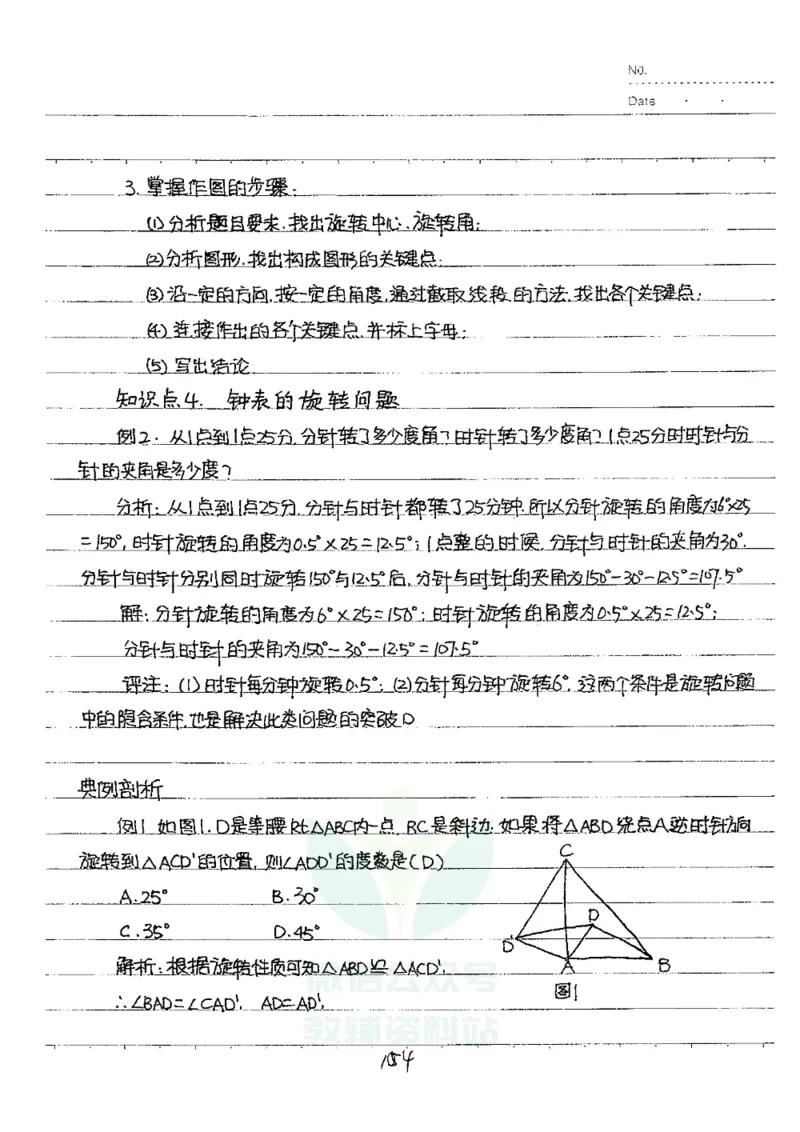 No.
Date . .
3. 掌握作图的步骤：
(1)分析题目要求，找出旋转中心、旋转角；
(2)分析图形，找出构成图形的关键点；
(3)沿一定的方向，按一定的角度，通过截取线段的方法，找出各个关键点；
(4)连接作出的各个关键点，并标上字母；
(5)写出结论.
知识点4. 钟表的旋转问题
例2. 从1点到1点25分，分针转了多少度角？时针转了多少度角？1点25分时时针与分
针的夹角是多少度？
分析：从1点到1点25分，分针与时针都转了25分钟，所以分针旋转的角度为6°×25
=150°，时针旋转的角度为0.5°×25=12.5°；1点整的时候，分针与时针的夹角为30°.
分针与时针分别同时旋转150°与12.5°后，分针与时针的夹角为150°-30°-12.5°=107.5°
解：分针旋转的角度为6°×25=150°；时针旋转的角度为0.5°×25=12.5°；
分针与时针的夹角为150°-30°-12.5°=107.5°
评注：(1)时针每分钟旋转0.5°；(2)分针每分钟旋转6°，这两个条件是旋转问题
中的隐含条件，也是解决此类问题的突破口
典例剖析
例1 如图1，D是等腰Rt△ABC内一点，BC是斜边，如果将△ABD绕点A逆时针方向
旋转到△ACD'的位置，则∠ADD'的度数是(D)
A.25° B.30°
C.35° D.45°
C
D
D'
A
B
图1
解析：根据旋转性质可知△ABD≌△ACD'，
∴∠BAD=∠CAD'，AD=AD'，
微信公众号
教辅资料站
154